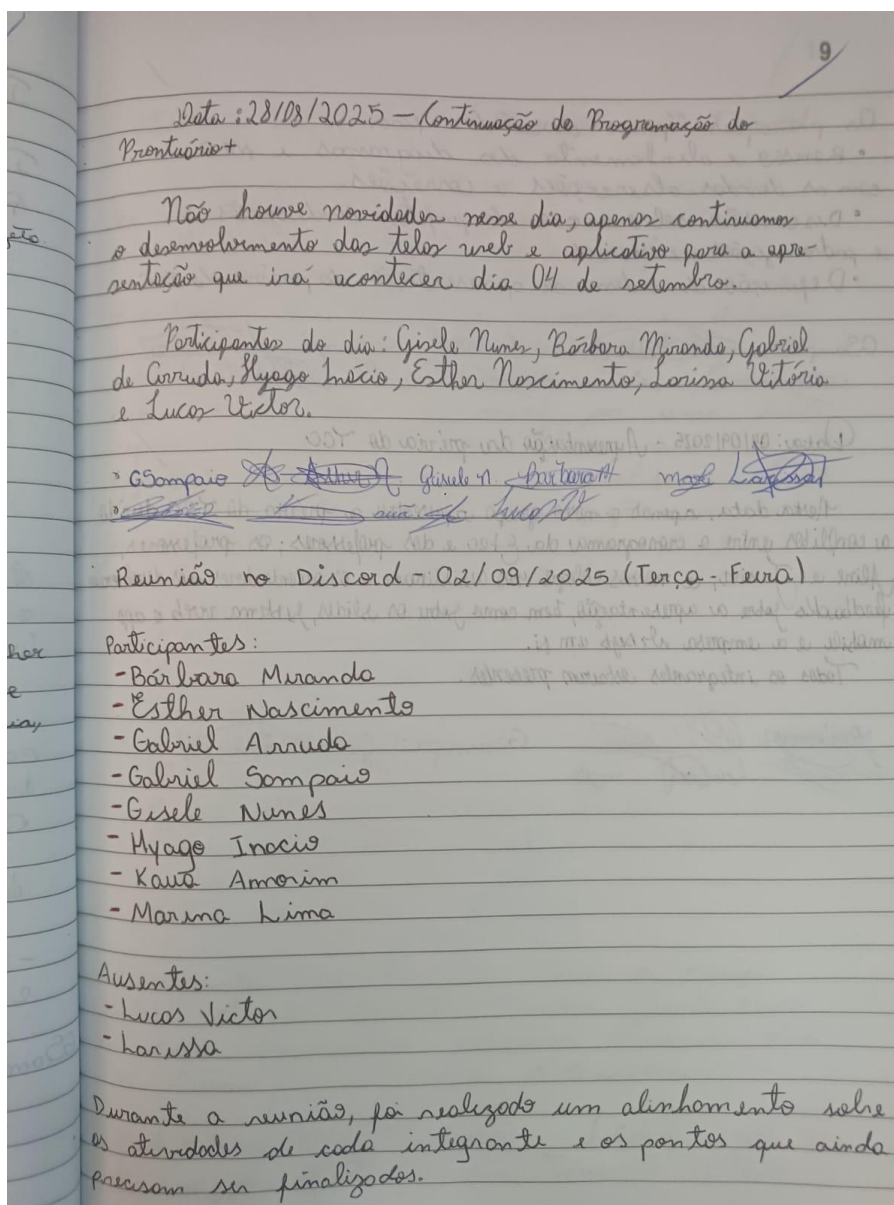 9
Data: 28/08/2025 - Continuação da Programação do
Prontuário+
Não houve novidades nesse dia, apenas continuamos
o desenvolvimento das telas web e aplicativo para a apre-
sentação que irá acontecer dia 04 de setembro.
Participantes do dia: Gisele Nunes, Bárbara Miranda, Gabriel
de Arruda, Hyago Inácio, Esther Nascimento, Larissa Vitória
e Lucas Victor.
GSampaio Gisele N Bárbara Larissa
Lucas V
Reunião no Discord - 02/09/2025 (Terça-Feira)
Participantes:
- Bárbara Miranda
- Esther Nascimento
- Gabriel Arruda
- Gabriel Sampaio
- Gisele Nunes
- Hyago Inacio
- Kauã Amorim
- Marina Lima
Ausentes:
- Lucas Victor
- Larissa
Durante a reunião, foi realizado um alinhamento sobre
as atividades de cada integrante e os pontos que ainda
precisam ser finalizados.
eto
her
e